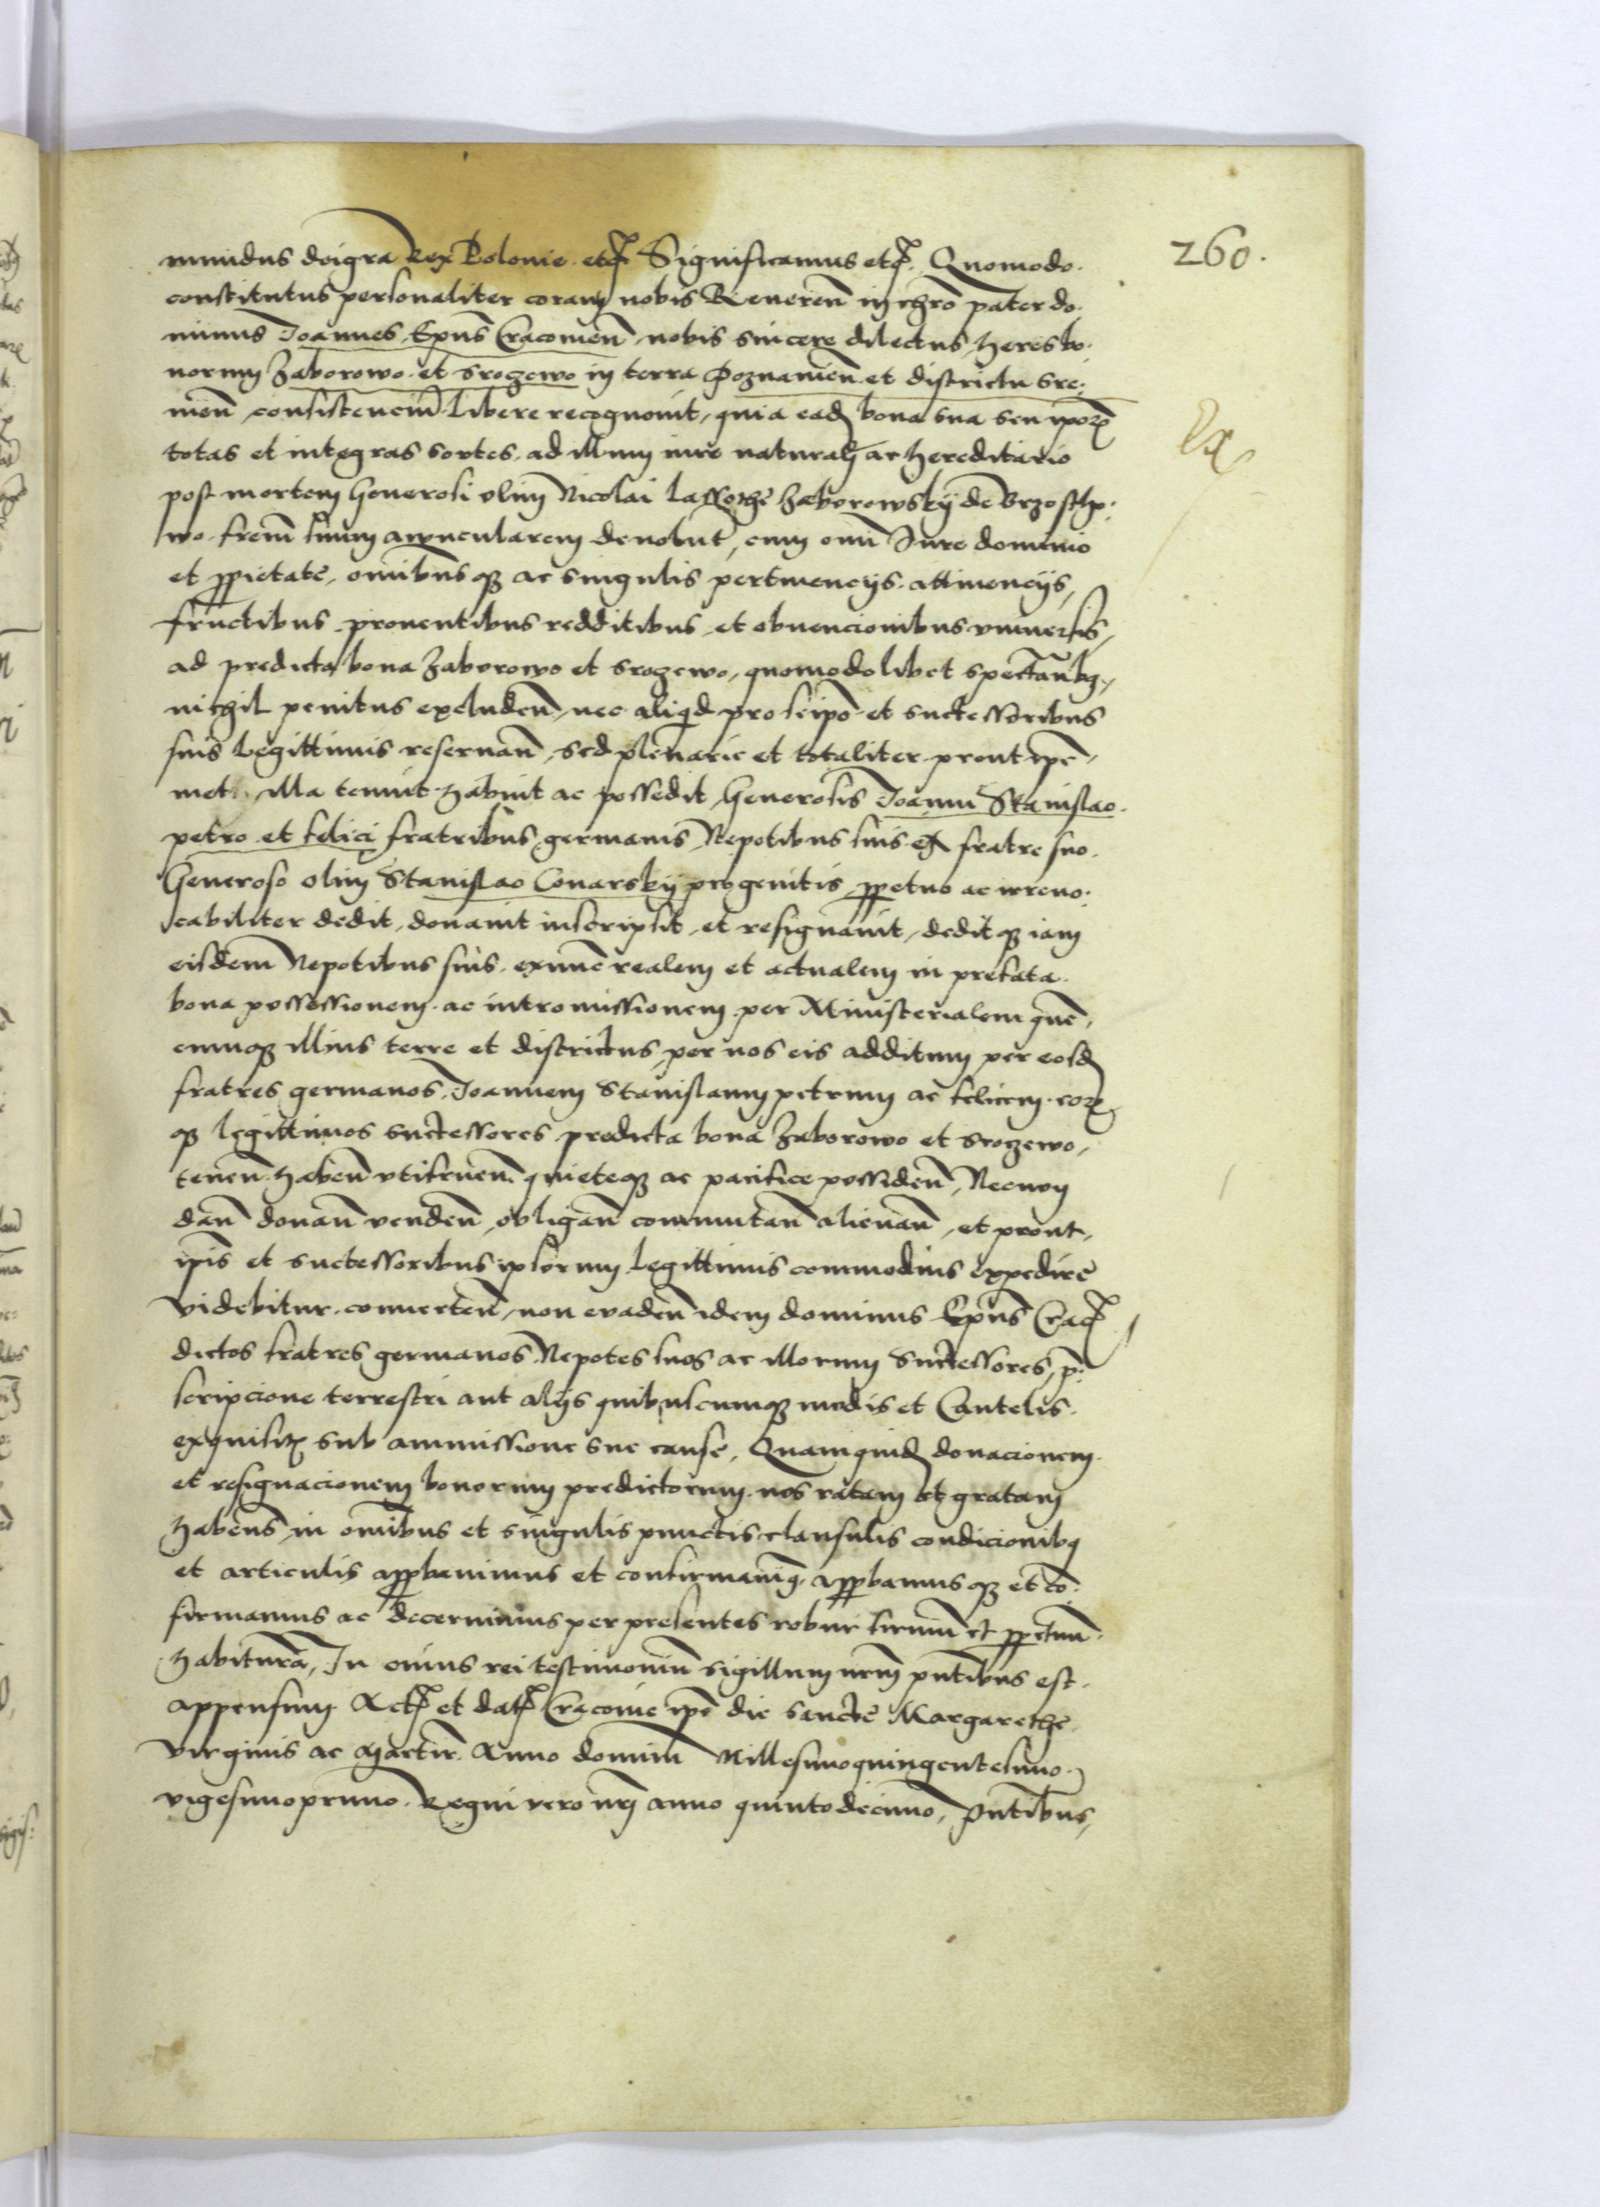 260.
mundus deigra Rex Polonie etc̃ Significamus etc̃. Quomodo.
constitutus personaliter coram nobis Reueren̄ in chr̄o pater do.
minus Joannes Ep̄us Cracouien̄ nobis sincere dilectus, heres bo.
norum Zaborowo et Srozewo in terra Poznanien̄ et districtu Sre.
men̄ consisten̄ Libere recognouit, quia ead bona sua seu ipor
totas et integras sortes, ad illum iure naturali ac hereditario
post mortem Generosi olim Nicolai Lassothe Zaborowsky de Brzosthp.
wo fr̄em suum awncularem deuolut̄, cum om̄i Jure dominio
et pp̄rietate, om̄ibusq3 ac singulis pertinencijs attinencijs,
fructibus prouentibus redditibus et obuencionibus vniuersis,
ad predicta bona Zaborowo et Srozewo, quomodolibet spectan̄
nichil penitus excluden̄, nec aliq̄d pro se ip̄o et successoribus
suis Legittimis reseruan̄, sed plenarie et totaliter prout ip̄e
met illa tenuit habuit ac possedit, Generosis Joanni Stanislao.
petro et felici fratribus germanis Nepotibus suis ex fratre suo.
Generoso olim Stanislao Conarsky progenitis pp̄etuo ac irreuo.
cabiliter dedit, donauit inscripsit, et resignauit, deditq3 iam
eisdem Nepotibus suis ex nunc realem et actualem in prefata
bona possessionem ac intromissionem per Ministerialem quen̄
cunq3 illius terre et districtus, per nos eis additum per eosd
fratres germanos Joannem Stanislaum petrum ac felicem eor
q3 legittimos successores predicta bona Zaborowo et Srozewo,
tenen̄ haben̄ vtifruen̄ quieteq3 ac pacifice possiden̄, Necnon
dan̄ donan̄ venden̄ obligan̄ commutan̄ alienan̄, et prout,
ip̄is et successoribus ipsorum legittimis commodius expedire
videbitur conuerten̄, non euaden̄ idem dominus Ep̄us Crac̃
dictos fratres germanos Nepotes suos ac illorum Successores, p̄.
scripcione terrestri aut alijs quibuscumq3 modis et Cautelis
exquisit̄ sub ammissione sue cause. Quamquid donacionem
et resignacionem bonorum predictorum nos ratam et gratam
habens in om̄ibus et singulis punctis clausulis condicionibq
et articulis app̄bauimus et confirmauimq, app̄bamusq3 et co.
firmamus ac decernimus per presentes robur firmum et pp̄etuu.
habitura, In cuius rei testimonium sigillum nr̄m p̄ntibus est
appensum Act̄ et dat̄ Cracouie ip̄e die Sancte Margarethe
virginis ac Martir̄ Anno domini Millesimoquingentesimo
vigesimoprimo. Regni vero nr̄i anno quintodecimo, P̄ntibus,